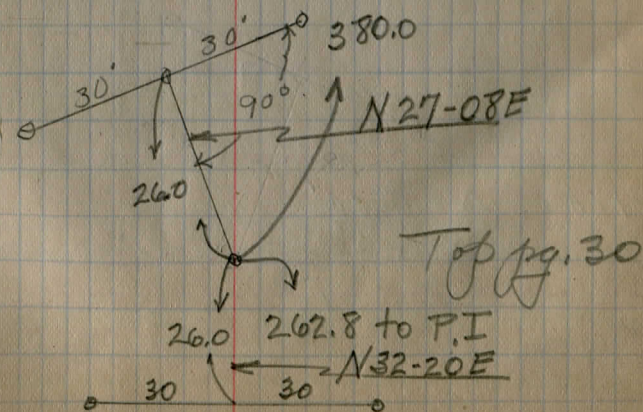 30' 380.0
30'
90° N27-08E
26.0
Top pg. 30
26.0 262.8 to P.I
N32-20E
30 30